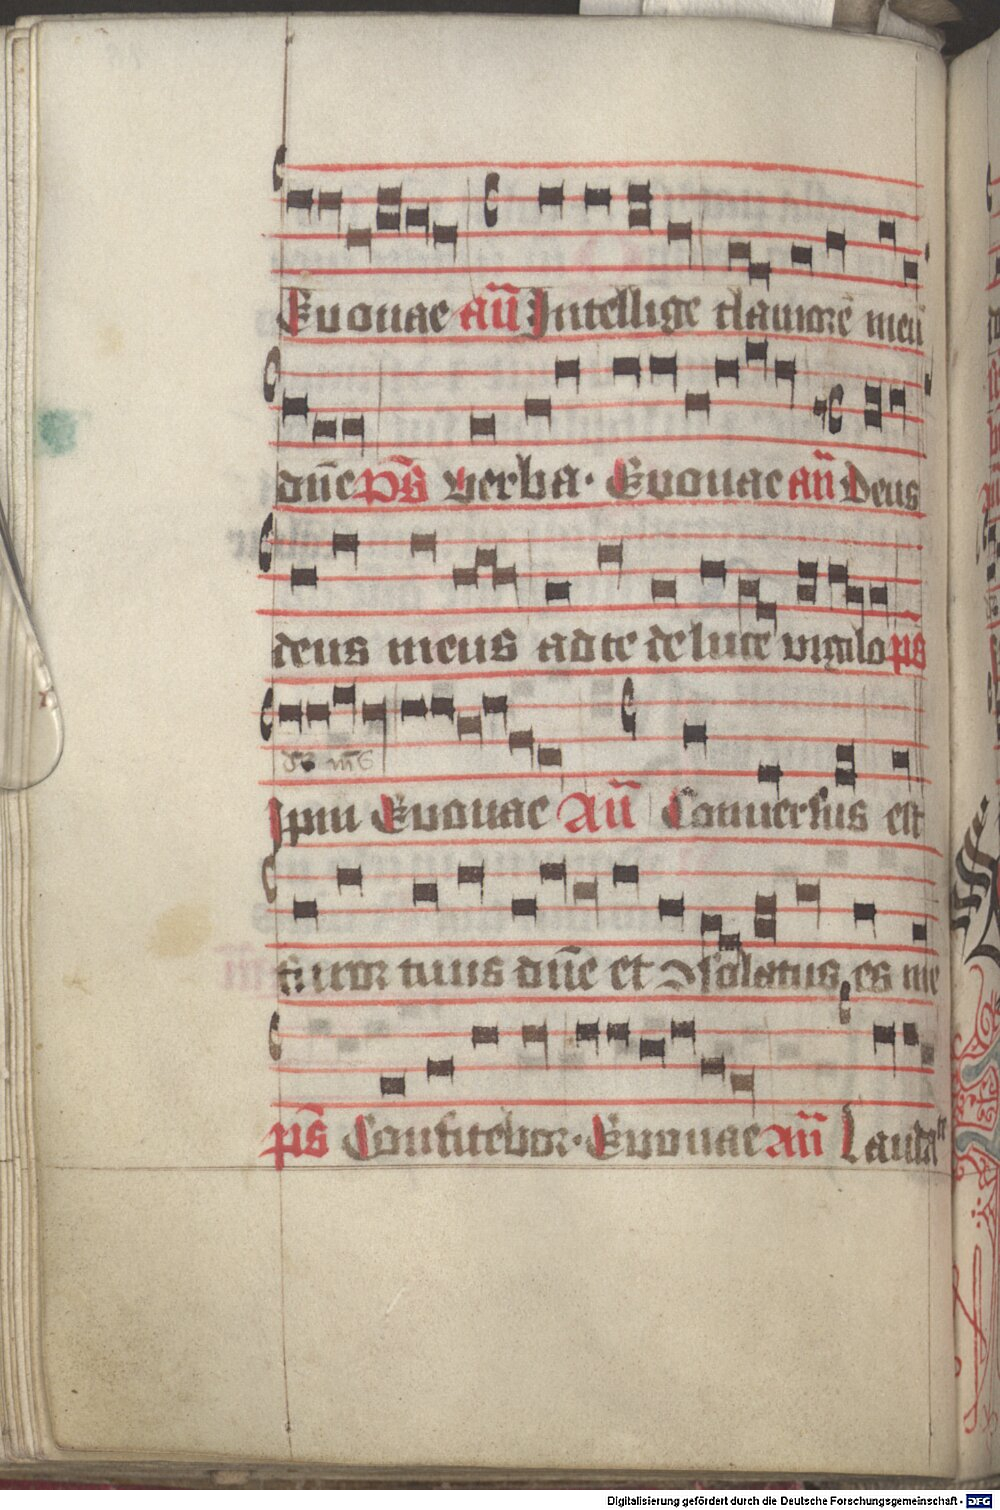 Euouae añ Intellige clamorē meū
dñe ps̄ verba· Euouae añ Deus
deus meus ad te de luce vigilo ps
Ipm Euouae Añ Conuersus est
furor tuus dñe et ɔsolatus es me
ps̄ Confitebor· Euouae Añ Laudate
Digitalisierung gefördert durch die Deutsche Forschungsgemeinschaft - DFG